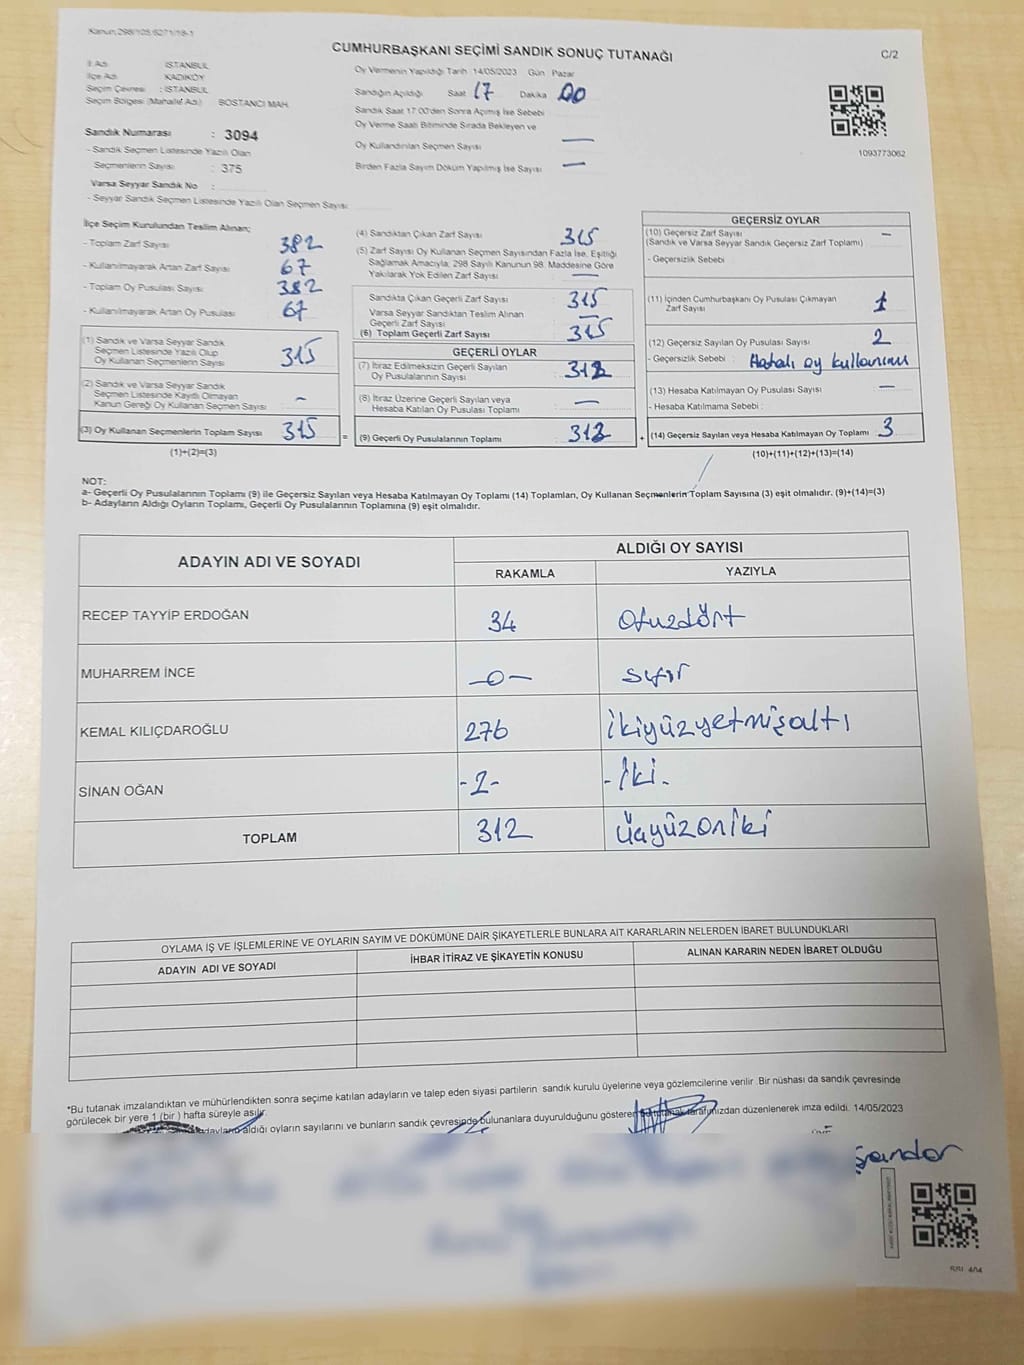 Kanun,298/105,6271/18-1
CUMHURBAŞKANI SEÇİMİ SANDIK SONUÇ TUTANAĞI
C/2
İl Adı : İSTANBUL
İlçe Adı : KADIKÖY
Seçim Çevresi : İSTANBUL
Seçim Bölgesi (Mahalle Adı) : BOSTANCI MAH.
Sandık Numarası : 3094
- Sandık Seçmen Listesinde Yazılı Olan
Seçmenlerin Sayısı : 375
Varsa Seyyar Sandık No :
- Seyyar Sandık Seçmen Listesinde Yazılı Olan Seçmen Sayısı
Oy Vermenin Yapıldığı Tarih :14/05/2023 Gün : Pazar
Sandığın Açıldığı Saat 17 Dakika 00
Sandık Saat 17:00'den Sonra Açılmış İse Sebebi
Oy Verme Saati Bitiminde Sırada Bekleyen ve
Oy Kullandırılan Seçmen Sayısı —
Birden Fazla Sayım Döküm Yapılmış İse Sayısı —
1093773062
İlçe Seçim Kurulundan Teslim Alınan;
- Toplam Zarf Sayısı 382
- Kullanılmayarak Artan Zarf Sayısı 67
- Toplam Oy Pusulası Sayısı 382
- Kullanılmayarak Artan Oy Pusulası 67
(1) Sandık ve Varsa Seyyar Sandık
Seçmen Listesinde Yazılı Olup
Oy Kullanan Seçmenlerin Sayısı 315
(2) Sandık ve Varsa Seyyar Sandık
Seçmen Listesinde Kayıtlı Olmayan
Kanun Gereği Oy Kullanan Seçmen Sayısı -
(3) Oy Kullanan Seçmenlerin Toplam Sayısı 315
(1)+(2)=(3)
(4) Sandıktan Çıkan Zarf Sayısı 315
(5) Zarf Sayısı Oy Kullanan Seçmen Sayısından Fazla İse, Eşitliği
Sağlamak Amacıyla, 298 Sayılı Kanunun 98. Maddesine Göre
Yakılarak Yok Edilen Zarf Sayısı —
Sandıkta Çıkan Geçerli Zarf Sayısı 315
Varsa Seyyar Sandıktan Teslim Alınan
Geçerli Zarf Sayısı —
(6) Toplam Geçerli Zarf Sayısı 315
GEÇERLİ OYLAR
(7) İtiraz Edilmeksizin Geçerli Sayılan
Oy Pusulalarının Sayısı 312
(8) İtiraz Üzerine Geçerli Sayılan veya
Hesaba Katılan Oy Pusulası Toplamı —
= (9) Geçerli Oy Pusulalarının Toplamı 312
GEÇERSİZ OYLAR
(10) Geçersiz Zarf Sayısı —
(Sandık ve Varsa Seyyar Sandık Geçersiz Zarf Toplamı)
- Geçersizlik Sebebi
(11) İçinden Cumhurbaşkanı Oy Pusulası Çıkmayan
Zarf Sayısı 1
(12) Geçersiz Sayılan Oy Pusulası Sayısı 2
- Geçersizlik Sebebi : Hatalı oy kullanımı
(13) Hesaba Katılmayan Oy Pusulası Sayısı —
- Hesaba Katılmama Sebebi :
+ (14) Geçersiz Sayılan veya Hesaba Katılmayan Oy Toplamı 3
(10)+(11)+(12)+(13)=(14)
NOT:
a- Geçerli Oy Pusulalarının Toplamı (9) ile Geçersiz Sayılan veya Hesaba Katılmayan Oy Toplamı (14) Toplamları, Oy Kullanan Seçmenlerin Toplam Sayısına (3) eşit olmalıdır. (9)+(14)=(3)
b- Adayların Aldığı Oyların Toplamı, Geçerli Oy Pusulalarının Toplamına (9) eşit olmalıdır.
ADAYIN ADI VE SOYADI
ALDIĞI OY SAYISI
RAKAMLA YAZIYLA
RECEP TAYYİP ERDOĞAN 34 Otuzdört
MUHARREM İNCE —0— sıfır
KEMAL KILIÇDAROĞLU 276 ikiyüzyetmişaltı
SİNAN OĞAN -2- -İki-
TOPLAM 312 üçyüzoniki
OYLAMA İŞ VE İŞLEMLERİNE VE OYLARIN SAYIM VE DÖKÜMÜNE DAİR ŞİKAYETLERLE BUNLARA AİT KARARLARIN NELERDEN İBARET BULUNDUKLARI
ADAYIN ADI VE SOYADI İHBAR İTİRAZ VE ŞİKAYETİN KONUSU ALINAN KARARIN NEDEN İBARET OLDUĞU
*Bu tutanak imzalandıktan ve mühürlendikten sonra seçime katılan adayların ve talep eden siyasi partilerin sandık kurulu üyelerine veya gözlemcilerine verilir. Bir nüshası da sandık çevresinde
görülecek bir yere 1 (bir) hafta süreyle asılır.
adayların aldığı oyların sayılarını ve bunların sandık çevresinde bulunanlara duyurulduğunu gösteren bu tutanak tarafımızdan düzenlenerek imza edildi. 14/05/2023